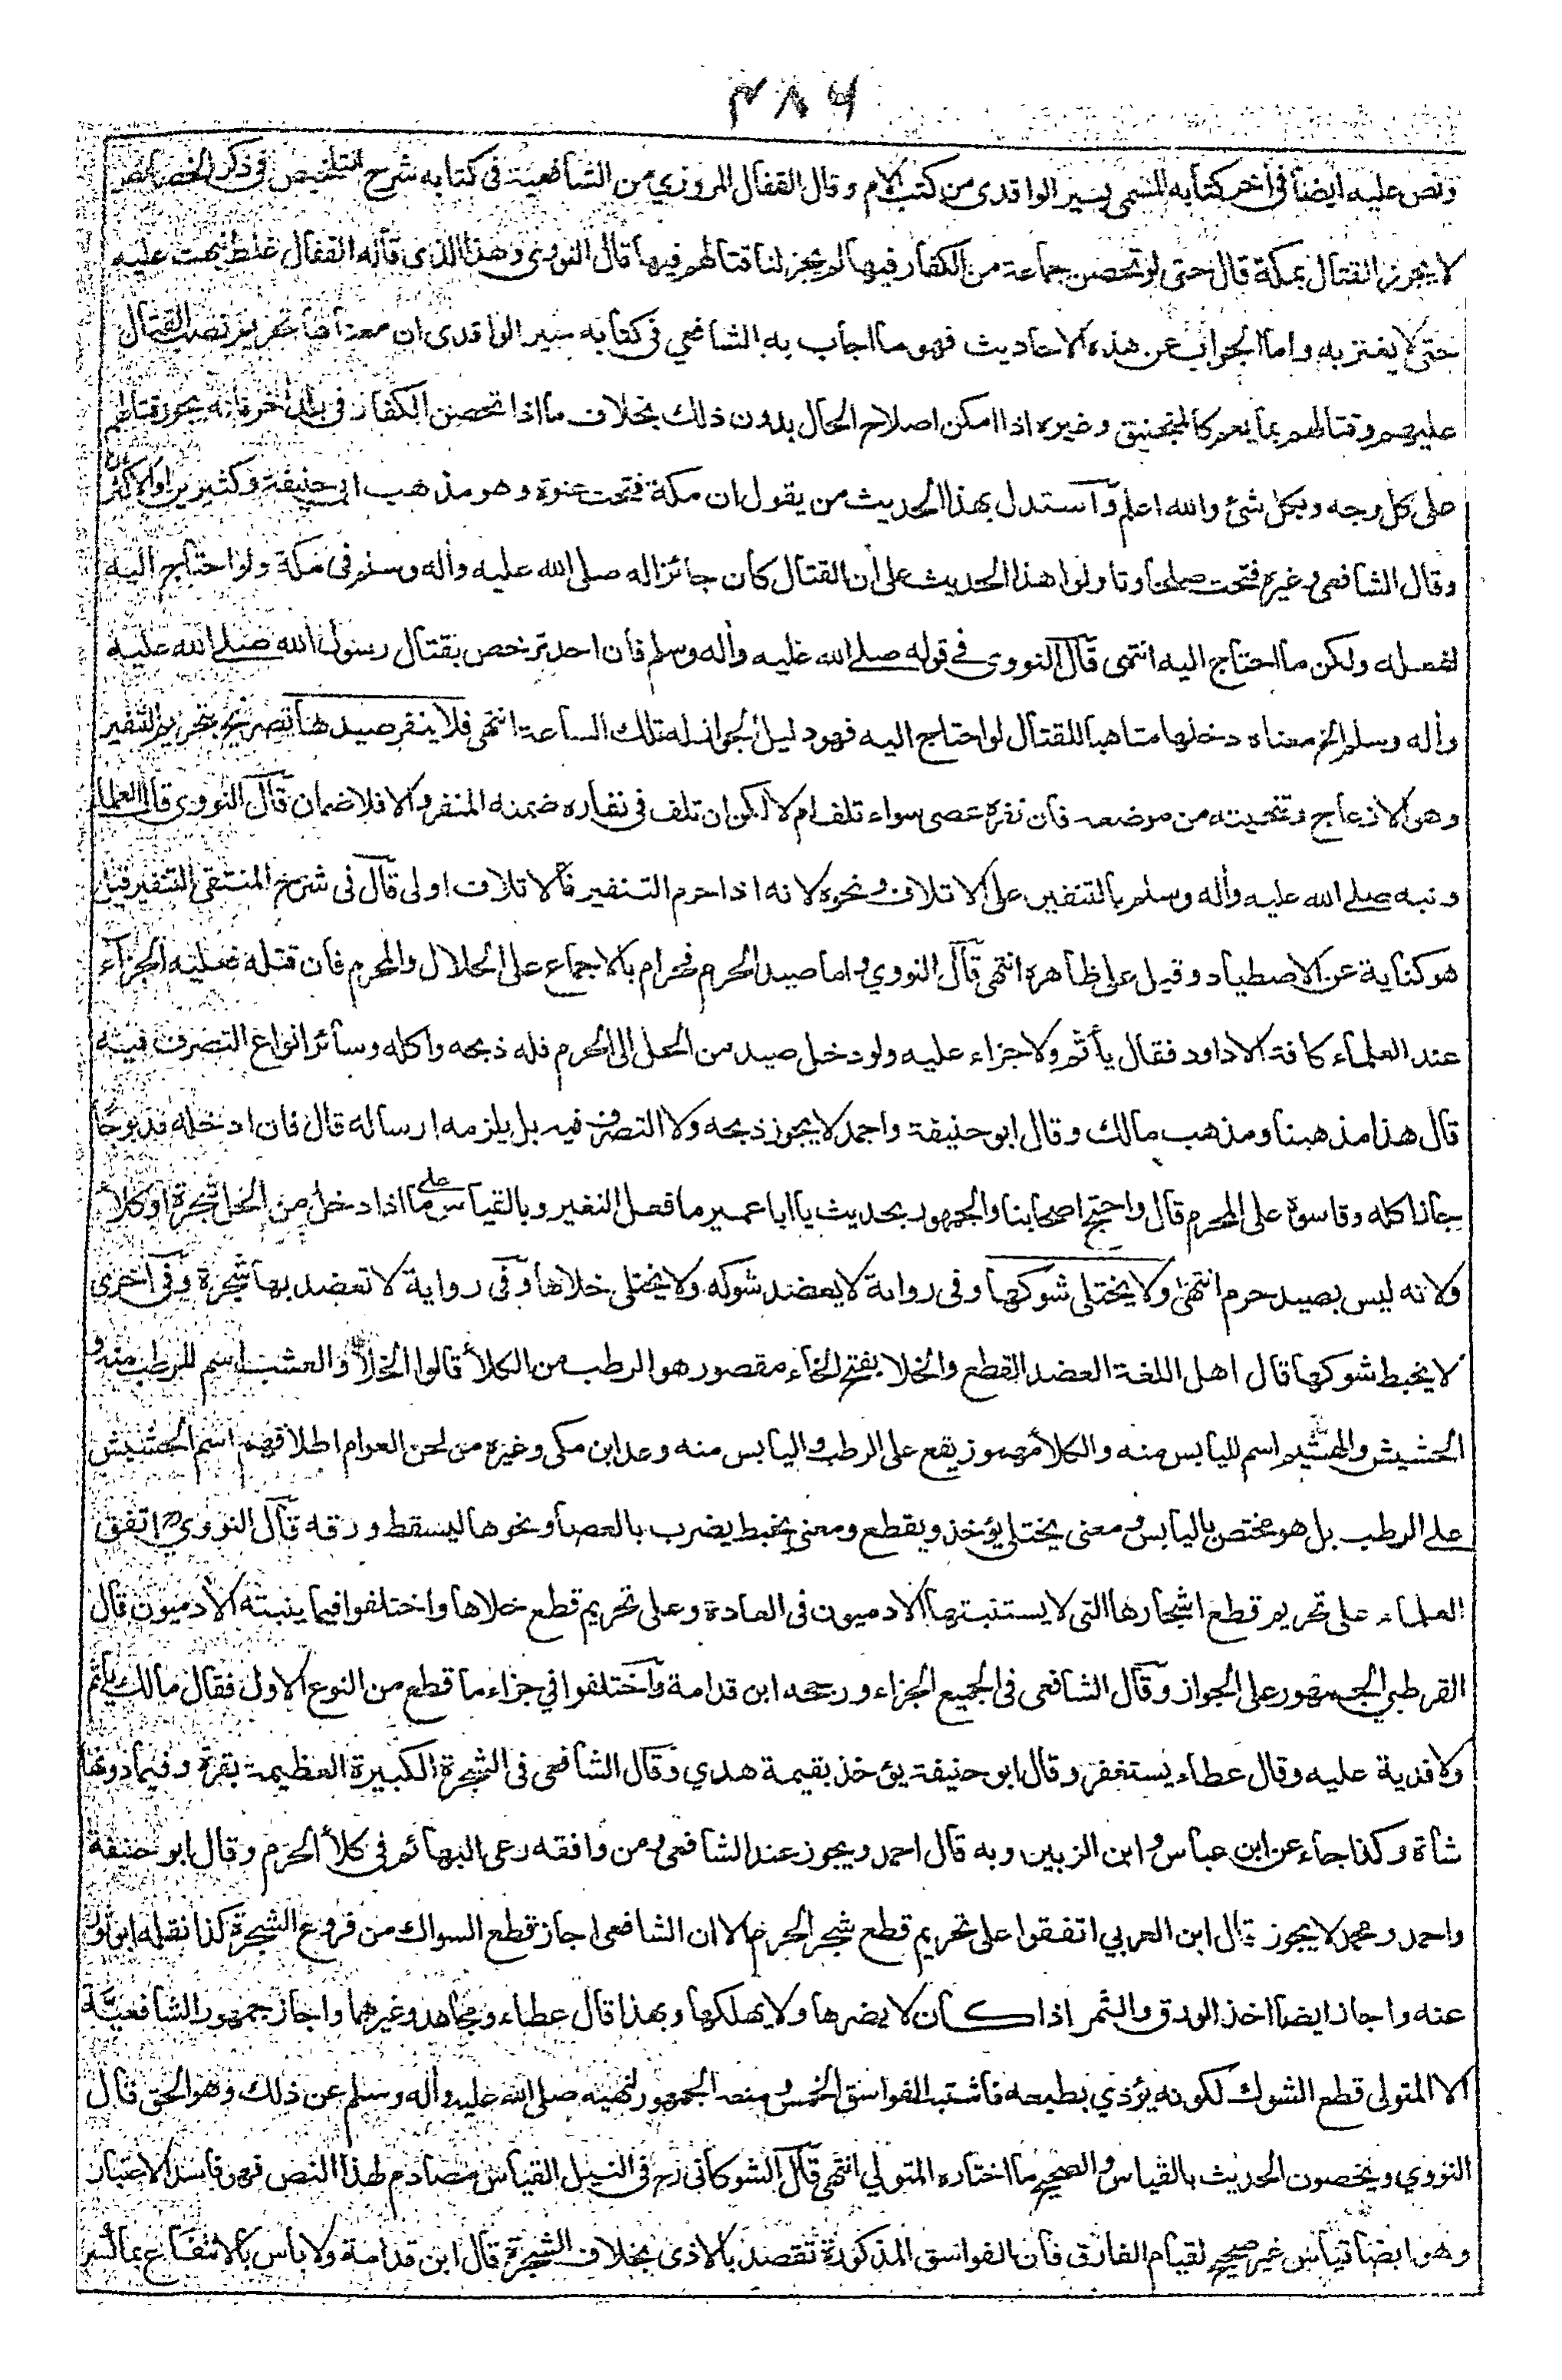 ٤٨٦
ونص عليه ايضا في أخر كتابه المسمى بسير الواقدى من كتب الام وقال القفال المروزي من الشافعية فى كتابه شرح التلخيص فى ذكر الخصائص
لا يجوز القتال بمكة قال حتى لو تحصن جماعة من الكفار فيها لم يجز لنا قتالهم فيها قال النووى وهذا الذى قاله القفال غلط نبهت عليه
حتى لا يغتر به واما الجواب عن هذه الاحاديث فهو ما اجاب به الشافعي فى كتابه سير الواقدى ان معناها تحريم نصب القتال
عليهم وقتالهم بما يعم كالمنجنيق وغيره اذا امكن اصلاح الحال بدون ذلك بخلاف ما اذا تحصن الكفار فى بلد اخر فانه يجوز قتالهم
على كل وجه وبكل شئ والله اعلم وآستدل بهذا الحديث من يقول ان مكة فتحت عنوة وهو مذهب ابى حنيفة وكثيرين او الاكثرين
وقال الشافعى وغيره فتحت صلحا وتاولوا هذا الحديث على أن القتال كان جائزا له صلى الله عليه وأله وسلم فى مكة ولو احتاج اليه
لفعله ولكن ما احتاج اليه انتهى قآل النووى في قوله صلى الله عليه وأله وسلم فان احد ترخص بقتال رسول الله صلى الله عليه
وأله وسلم الخ معناه دخلها متاهبا للقتال لو احتاج اليه فهو دليل لجوازله تلك الساعة انتهى فلا ينفر صيدها تصريح بتحريم التنفير
وهو الازعاج وتنحيته من موضعه فان نفره عصى سواء تلف ام لا لكن ان تلف فى نفاره ضمنه المنفر والا فلا ضمان قآل النووى قال العلماء
ونبه صلى الله عليه وأله وسلم بالتنفير على الاتلاف ونحوه لانه اذا حرم التنفير فالاتلاف اولى قآل فى شرح المنتقى التنفير قيل
هو كناية عن الاصطياد وقيل على ظاهره انتهى قآل النووي واما صيد الحرم فحرام بالاجماع على الحلال والمحرم فان قتله فعليه الجزآء
عند العلماء كافة الا داود فقال يأثم ولا جزاء عليه ولو دخل صيد من الحل الى الحرم فله ذبحه واكله وسائر انواع التصرف فيه
قال هذا مذهبنا ومذهب مالك وقال ابو حنيفة واحمد لا يجوز ذبحه ولا التصرف فيه بل يلزمه ارساله قال فان ادخله مذبوحًا
جاز اكله وقاسوة على المحرم قال واحتج اصحابنا والجمهور بحديث يا ابا عمير ما فعل النغير وبالقياس على ما اذا دخل من الحل شجرة او كلأ
ولانه ليس بصيد حرم انتهى ولا يختلى شوكها وفى رواية لا يعضد شوكه ولا يختلى خلاها وفى رواية لا تعضد بها شجرة وفى اخرى
لا يخبط شوكها قال اهل اللغة العضد القطع والخلا بفتح الخاء مقصور هو الرطب من الكلأ قالوا الخلا والعشب اسم للرطب منه و
الحشيش والهشيم اسم لليابس منه والكلأ مهموز يقع على الرطب واليابس منه وعد ابن مكى وغيره من لحن العوام اطلاقهم اسم الحشيش
على الرطب بل هو مختص باليابس ومعنى يختلى يؤخذ ويقطع ومعنى يخبط يضرب بالعصا ونحوها ليسقط ورقه قآل النووي اتفق
العلماء على تحريم قطع اشجارها التى لا يستنبتها الادميون فى العادة وعلى تحريم قطع خلاها واختلفوا فيما ينبته الادميون قال
القرطبي الجمهور على الجواز وقآل الشافعى فى الجميع الجزاء ورجحه ابن قدامة وآختلفوا في جزاء ما قطع من النوع الاول فقال مالك يأثم
ولا فدية عليه وقال عطاء يستغفر وقال ابو حنيفة يؤخذ بقيمة هدي وقال الشافعى فى الشجرة الكبيرة العظيمة بقرة وفيما دونها
شاة وكذا جاء عن ابن عباس وابن الزبير وبه قال احمد ويجوز عند الشافعى ومن وافقه رعى البهائم فى كلأ الحرم وقال ابو حنيفة
واحمد ومحمد لا يجوز قال ابن العربي اتفقوا على تحريم قطع شجر الحرم الا ان الشافعى اجاز قطع السواك من فروع الشجرة كذا نقله ابو ثور
عنه واجاز ايضا اخذ الورق والثمر اذا كان لا يضرها ولا يهلكها وبهذا قال عطاء ومجاهد وغيرهما واجاز جمهور الشافعية
الا المتولى قطع الشوك لكونه يؤذي بطبعه فاشتبه الفواسق الخمس ومنعه الجمهور لنهيه صلى الله عليه وأله وسلم عن ذلك وهو الحق قال
النووي ويخصون الحديث بالقياس والصحيح ما اختاره المتولي انتهى قآل الشوكانى رح فى النيل القياس مصادم لهذا النص فهو فاسد الاعتبار
وهو ايضا قياس غير صحيح لقيام الفارق فان الفواسق المذكورة تقصد بالاذى بخلاف الشجرة قال ابن قدامة ولا باس بالانتفاع بما